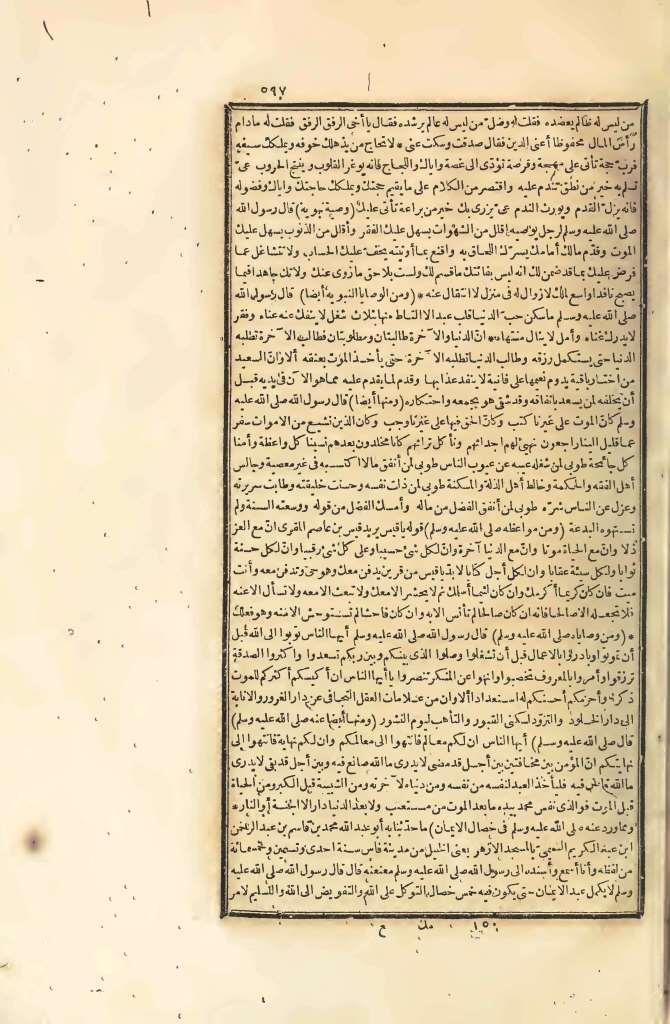 ٥٩٧
من ليس له ظالم يعضده فقلت له وضل من ليس له عالم يرشده فقال يا أخي الرفق الرفق فقلت له مادام
رأس المال محفوظا أعني الدين فقال صدقت وسكت عني * لا تحتاج من يذهلك خوفه ويملكك سيفه
فرب حجة تأتي على مهجة وفرصة تؤدى الى غصة واياك واللجاج فانه يوغر القلوب وينتج الحروب عي
تسلم به خير من نطق تندم عليه واقتصر من الكلام على ما يقيم حجتك ويملك حاجتك واياك وفضوله
فانه يزل القدم ويورث الندم عي يزرى بك خير من براعة تأتي عليك (وصية نبوية) قال رسول الله
صلى الله عليه وسلم لرجل يوصيه أقلل من الشهوات يسهل عليك الفقر وأقلل من الذنوب يسهل عليك
الموت وقدم مالك أمامك يسرك اللحاق به واقنع بما أوتيته يخف عليك الحساب ولا تتشاغل عما
فرض عليك بما قد ضمن لك انه ليس بفائتك ما قسم لك ولست بلاحق ما زوى عنك ولا تك جاهدا فيما
يصبح نافدا واسع لملك لا زوال له في منزل لا انتقال عنه * (ومن الوصايا النبوية أيضا) قال رسول الله
صلى الله عليه وسلم ما سكن حب الدنيا قلب عبد الا التاط منها بثلاث شغل لا ينفك عنه عناه وفقر
لا يدرك غناه وأمل لا ينال منتهاه * ان الدنيا والآخرة طالبتان ومطلوبتان فطالب الآخرة تطلبه
الدنيا حتى يستكمل رزقه وطالب الدنيا تطلبه الآخرة حتى يأخذ الموت بعنقه ألا وان السعيد
من اختار باقية يدوم نعيمها على فانية لا ينفد عذابها وقدم لما يقدم عليه مما هو الآن في يديه قبل
أن يخلفه لمن يسعد بانفاقه وقد شقى هو بجمعه واحتكاره (ومنها أيضا) قال رسول الله صلى الله عليه
وسلم كأن الموت على غيرنا كتب وكأن الحق فيها على غيرنا وجب وكأن الذين نشيع من الاموات سفر
عما قليل الينا راجعون نبوئهم أجداثهم ونأكل تراثهم كأنا مخلدون بعدهم نسينا كل واعظة وأمنا
كل جائحة طوبى لمن شغله عيبه عن عيوب الناس طوبى لمن أنفق مالا اكتسبه في غير معصية وجالس
أهل الفقه والحكمة وخالط أهل الذلة والمسكنة طوبى لمن ذلت نفسه وحسنت خليقته وطابت سريرته
وعزل عن الناس شره طوبى لمن أنفق الفضل من ماله وأمسك الفضل من قوله ووسعته السنة ولم
تستهوه البدعة (ومن مواعظه صلى الله عليه وسلم) قوله يا قيس يريد قيس بن عاصم المقرى ان مع العز
ذلا وان مع الحياة موتا وان مع الدنيا آخرة وان لكل شيء حسيبا وعلى كل شيء رقيبا وان لكل حسنة
ثوابا ولكل سيئة عقابا وان لكل أجل كتابا لابد يا قيس من قرين يدفن معك وهو حى وتدفن معه وأنت
ميت فان كان كريما أكرمك وان كان لئيما أسلمك ثم لا يحشر الا معك ولا تبعث الا معه ولا تسأل الا عنه
فلا تجعله الا صالحا فانه ان كان صالحا لم تأنس الا به وان كان فاحشا لم تستوحش الا منه وهو فعلك
* (ومن وصاياه صلى الله عليه وسلم) قال رسول الله صلى الله عليه وسلم أيها الناس توبوا الى الله قبل
أن تموتوا وبادروا بالاعمال قبل أن تشغلوا وصلوا الذي بينكم وبين ربكم تسعدوا وأكثروا الصدقة
ترزقوا وأمروا بالمعروف تخصبوا وانهوا عن المنكر تنصروا يا أيها الناس ان أكيسكم أكثركم للموت
ذكرا وأحزمكم أحسنكم له استعدادا ألا وان من علامات العقل التجافي عن دار الغرور والانابة
الى دار الخلود والتزود لسكنى القبور والتأهب ليوم النشور (ومنها أيضا عنه صلى الله عليه وسلم)
قال صلى الله عليه وسلم) أيها الناس ان لكم معالم فانتهوا الى معالمكم وان لكم نهاية فانتهوا الى
نهايتكم ان المؤمن بين مخافتين بين أجل قد مضى لا يدرى ما الله صانع فيه وبين أجل قد بقى لا يدرى
ما الله قاضى فيه فليأخذ العبد لنفسه من نفسه ومن دنياه لآخرته ومن الشبيبة قبل الكبر ومن الحياة
قبل الموت فوالذي نفس محمد بيده ما بعد الموت من مستعتب ولا بعد الدنيا دار الا الجنة أو النار *
(ومما ورد عنه صلى الله عليه وسلم في خصال الايمان) ما حدثنا به أبو عبد الله محمد بن قاسم بن عبد الرحمن
ابن عبد الكريم التميمي بالمسجد الازهر بعين الخليل من مدينة فاس سنة احدى وتسعين وخمسمائة
من لفظه وأنا أسمع وأسنده الى رسول الله صلى الله عليه وسلم معنعنه قال قال رسول الله صلى الله عليه
وسلم لا يكمل عبد الايمان حتى يكون فيه خمس خصال التوكل على الله والتفويض الى الله والتسليم لامر
١٥٠ مك ح